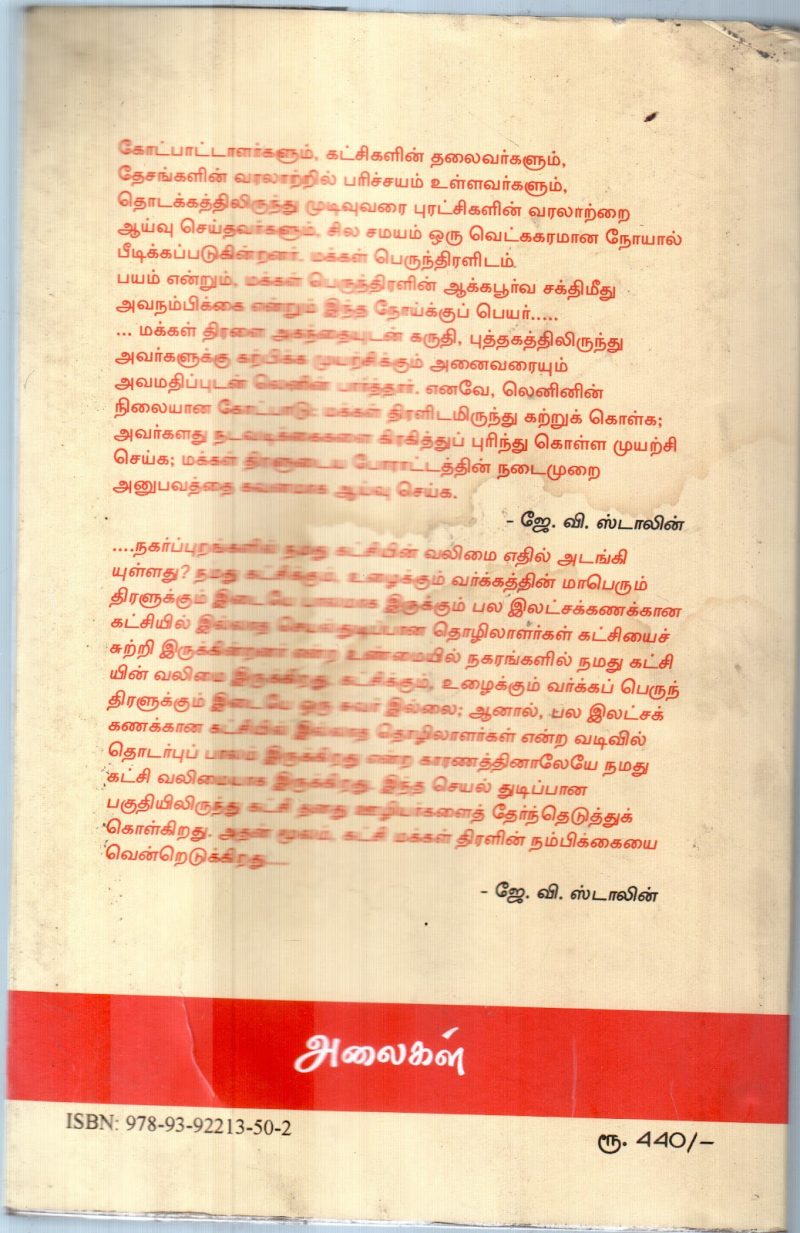 கோட்பாட்டாளர்களும், கட்சிகளின் தலைவர்களும்,
தேசங்களின் வரலாற்றில் பரிச்சயம் உள்ளவர்களும்,
தொடக்கத்திலிருந்து முடிவுவரை புரட்சிகளின் வரலாற்றை
ஆய்வு செய்தவர்களும், சில சமயம் ஒரு வெட்ககரமான நோயால்
பீடிக்கப்படுகின்றனர். மக்கள் பெருந்திரளிடம்.
பயம் என்றும், மக்கள் பெருந்திரளின் ஆக்கபூர்வ சக்திமீது
அவநம்பிக்கை என்றும் இந்த நோய்க்குப் பெயர்.....
... மக்கள் திரளை அகந்தையுடன் கருதி, புத்தகத்திலிருந்து
அவர்களுக்கு கற்பிக்க முயற்சிக்கும் அனைவரையும்
அவமதிப்புடன் லெனின் பார்த்தார். எனவே, லெனினின்
நிலையான கோட்பாடு: மக்கள் திரளிடமிருந்து கற்றுக் கொள்க;
அவர்களது நடவடிக்கைகளை கிரகித்துப் புரிந்து கொள்ள முயற்சி
செய்க; மக்கள் திரளுடைய போராட்டத்தின் நடைமுறை
அனுபவத்தை கவனமாக ஆய்வு செய்க.
- ஜே. வி. ஸ்டாலின்
....நகர்ப்புறங்களில் நமது கட்சியின் வலிமை எதில் அடங்கி
யுள்ளது? நமது கட்சிக்கும், உழைக்கும் வர்க்கத்தின் மாபெரும்
திரளுக்கும் இடையே பாலமாக இருக்கும் பல இலட்சக்கணக்கான
கட்சியில் இல்லாத செயல்துடிப்பான தொழிலாளர்கள் கட்சியைச்
சுற்றி இருக்கின்றனர் என்ற உண்மையில் நகரங்களில் நமது கட்சி
யின் வலிமை இருக்கிறது. கட்சிக்கும், உழைக்கும் வர்க்கப் பெருந்
திரளுக்கும் இடையே ஒரு சுவர் இல்லை; ஆனால், பல இலட்சக்
கணக்கான கட்சியில் இல்லாத தொழிலாளர்கள் என்ற வடிவில்
தொடர்புப் பாலம் இருக்கிறது என்ற காரணத்தினாலேயே நமது
கட்சி வலிமையாக இருக்கிறது. இந்த செயல் துடிப்பான
பகுதியிலிருந்து கட்சி தனது ஊழியர்களைத் தேர்ந்தெடுத்துக்
கொள்கிறது. அதன் மூலம், கட்சி மக்கள் திரளின் நம்பிக்கையை
வென்றெடுக்கிறது....
- ஜே. வி. ஸ்டாலின்
அலைகள்
ISBN: 978-93-92213-50-2
ரூ. 440/-